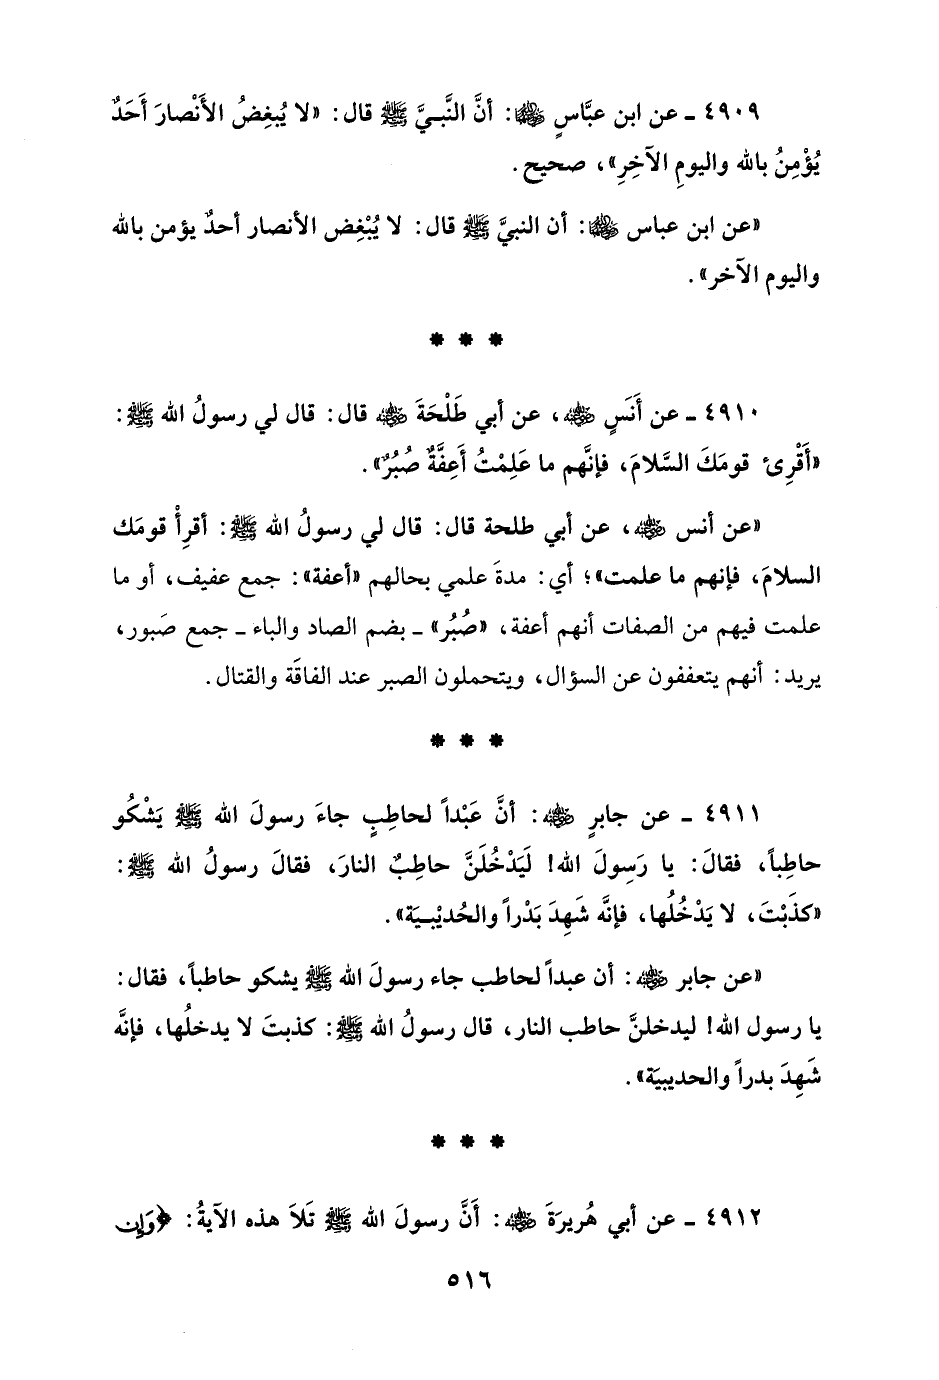 ٤٩٠٩ ـ عن ابن عبَّاسٍ ﵄: أنَّ النَّبيَّ ﷺ قال: «لا يُبغِضُ الأَنْصارَ أَحَدٌ
يُؤْمِنُ بالله واليومِ الآخِرِ»، صحيح.
«عن ابن عباس ﵄: أن النبيَّ ﷺ قال: لا يُبْغِض الأنصار أحدٌ يؤمن بالله
واليوم الآخر».
* * *
٤٩١٠ ـ عن أَنَسٍ ﵁، عن أبي طَلْحَةَ ﵁ قال: قال لي رسولُ الله ﷺ:
«أَقْرِئ قومَكَ السَّلامَ، فإنَّهم ما عَلِمْتُ أَعِفَّةٌ صُبُرٌ».
«عن أنس ﵁، عن أبي طلحة قال: قال لي رسولُ الله ﷺ: أقرِأْ قومَك
السلامَ، فإنهم ما علمت»؛ أي: مدةَ علمي بحالهم «أعفة»: جمع عفيف، أو ما
علمت فيهم من الصفات أنهم أعفة، «صُبُر» ـ بضم الصاد والباء ـ جمع صَبور،
يريد: أنهم يتعففون عن السؤال، ويتحملون الصبر عند الفاقَة والقتال.
* * *
٤٩١١ ـ عن جابرٍ ﵁: أنَّ عَبْداً لحاطِبٍ جاءَ رسولَ الله ﷺ يَشْكُو
حاطِباً، فقالَ: يا رَسِولَ الله! لَيَدْخُلَنَّ حاطِبٌ النارَ، فقالَ رسولُ الله ﷺ:
«كذَبْتَ، لا يَدْخُلُها، فإنَّه شَهِدَ بَدْراً والحُديْبـيَة».
«عن جابر ﵁: أن عبداً لحاطب جاء رسولَ الله ﷺ يشكو حاطباً، فقال:
يا رسول الله! ليدخلنَّ حاطب النار، قال رسولُ الله ﷺ: كذبتَ لا يدخلُها، فإنَّه
شَهِدَ بدراً والحديبيَة».
* * *
٤٩١٢ ـ عن أبي هُريرَةَ ﵁: أَنَّ رسولَ الله ﷺ تَلاَ هذه الآيةُ: ﴿وَإِن
٥١٦